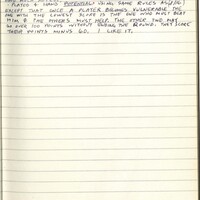 PLAYED 4 HAND USING SAME RULES AS
EXCEPT THAT ONCE A PLAYER BECOMES VULNERABLE THE
ONE WITH THE LOWEST SCORE IS THE ONE WHO MUST BEAT
HIM & THE OTHERS MUST HELP. THE OTHER TWO MAY
GO OVER 100 POINTS WITHOUT ENDING THE ROUND. THEY SCORE
THEIR POINTS MINUS 60. I LIKE IT.